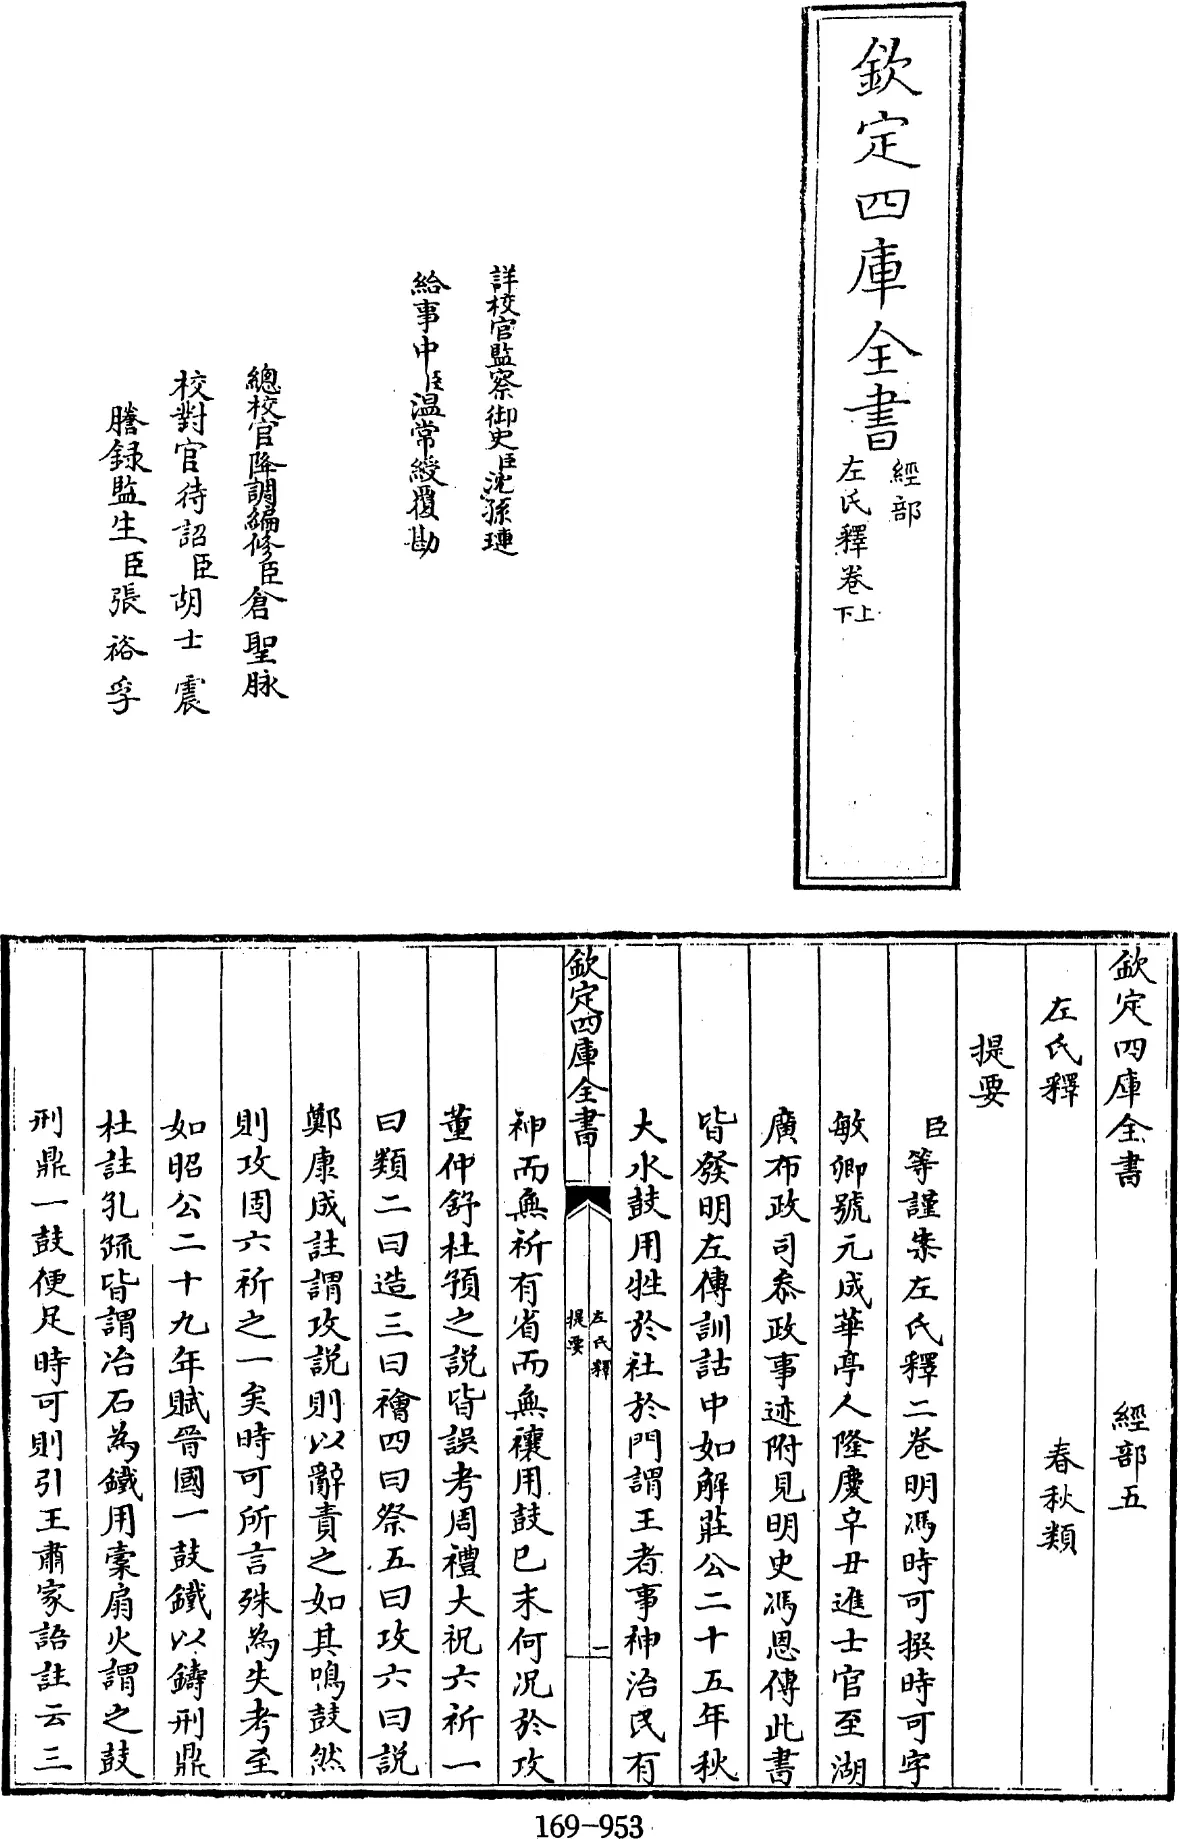 欽定四庫全書
經部
左氏釋卷上下
詳校官監察御史臣沈孫璉
給事中臣溫常綬覆勘
總校官降調編修臣倉聖脉
校對官待詔臣胡士震
謄錄監生臣張裕孚
欽定四庫全書 經部五
左氏釋 春秋類
提要
臣等謹案左氏釋二卷明馮時可撰時可字
敏卿號元成華亭人隆慶辛丑進士官至湖
廣布政司叅政事迹附見明史馮恩傳此書
皆發明左傳訓詁中如解莊公二十五年秋
大水鼓用牲於社於門謂王者事神治民有
欽定四庫全書
左氏釋
提要
一
神而無祈有省而無禳用鼓已末何況於攻
董仲舒杜預之説皆誤考周禮大祝六祈一
曰類二曰造三曰禬四曰禜五曰攻六曰説
鄭康成註謂攻説則以辭責之如其鳴鼓然
則攻固六祈之一矣時可所言殊為失考至
如昭公二十九年賦晉國一鼓鐵以鑄刑鼎
杜註孔疏皆謂冶石為鐵用橐扇火謂之鼓
刑鼎一鼓便足時可則引王肅家語註云三
169-953